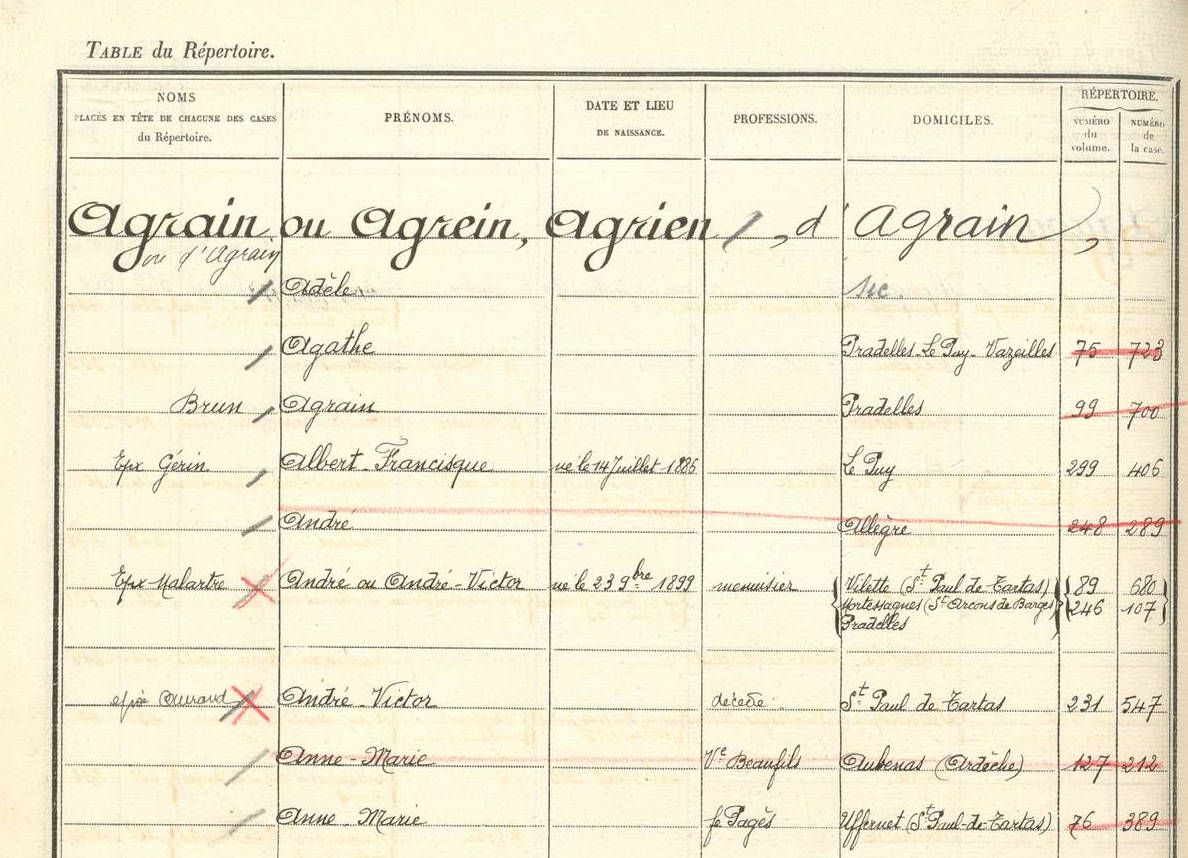 TABLE du Répertoire.
NOMS
PLACÉS EN TÊTE DE CHACUNE DES CASES
du Répertoire.
PRÉNOMS.
DATE ET LIEU
DE NAISSANCE.
PROFESSIONS.
DOMICILES.
RÉPERTOIRE.
NUMÉRO
du
volume.
NUMÉRO
de
la case.
Agrain ou Agrein, Agrien, d'Agrain,
ou d'Agrain
Adèle sic.
Agathe Pradelles-Le Puy-Vazeilles 75 723
Brun Agrain Pradelles 99 700
Epx Gérin Albert-Francisque né le 14 Juillet 1886 Le Puy 299 406
André Allègre 248 289
Epx Malartre André ou André-Victor né le 23 9bre 1899 menuisier Vilette (St Paul de Tartas) 89 680
Mortessagnes (St Arcons de Barges) 246 107
Pradelles
André-Victor décédé St Paul de Tartas 231 547
Anne-Marie Ve Beaufils Aubenas (Ardèche) 127 212
Anne-Marie fe Pagès Uffernet (St Paul-de-Tartas) 76 389